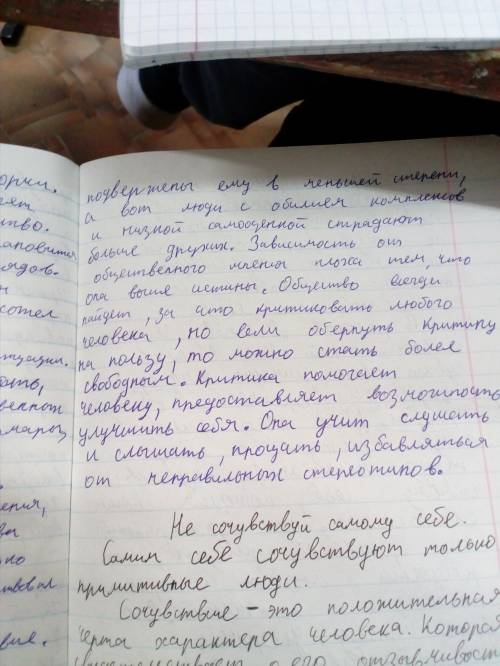 орки.
ят
тво.
ановится
рядов.
н
сотел
туации.
ать,
венной
марыз
ения,
вы
но
ствовал
вие.
подвержены ему в меньшей степени,
а вот люди с обилием комплексов
и низкой самооценкой страдают
больше других. Зависимость от
общественного мнения плоха тем, что
она выше истины. Общество всегда
найдет, за что критиковать любого
человека, но если обернуть критику
на пользу, то можно стать более
свободным. Критика помогает
человеку, предоставляет возможность
улучшить себя. Она учит слушать
и слышать, прощать, избавляться
от неправильных стереотипов.
Не сочувствуй самому себе.
Самим себе сочувствуют только
примитивные люди.
Сочувствие - это положительная
черта характера человека. Которая
о его отзывчивост